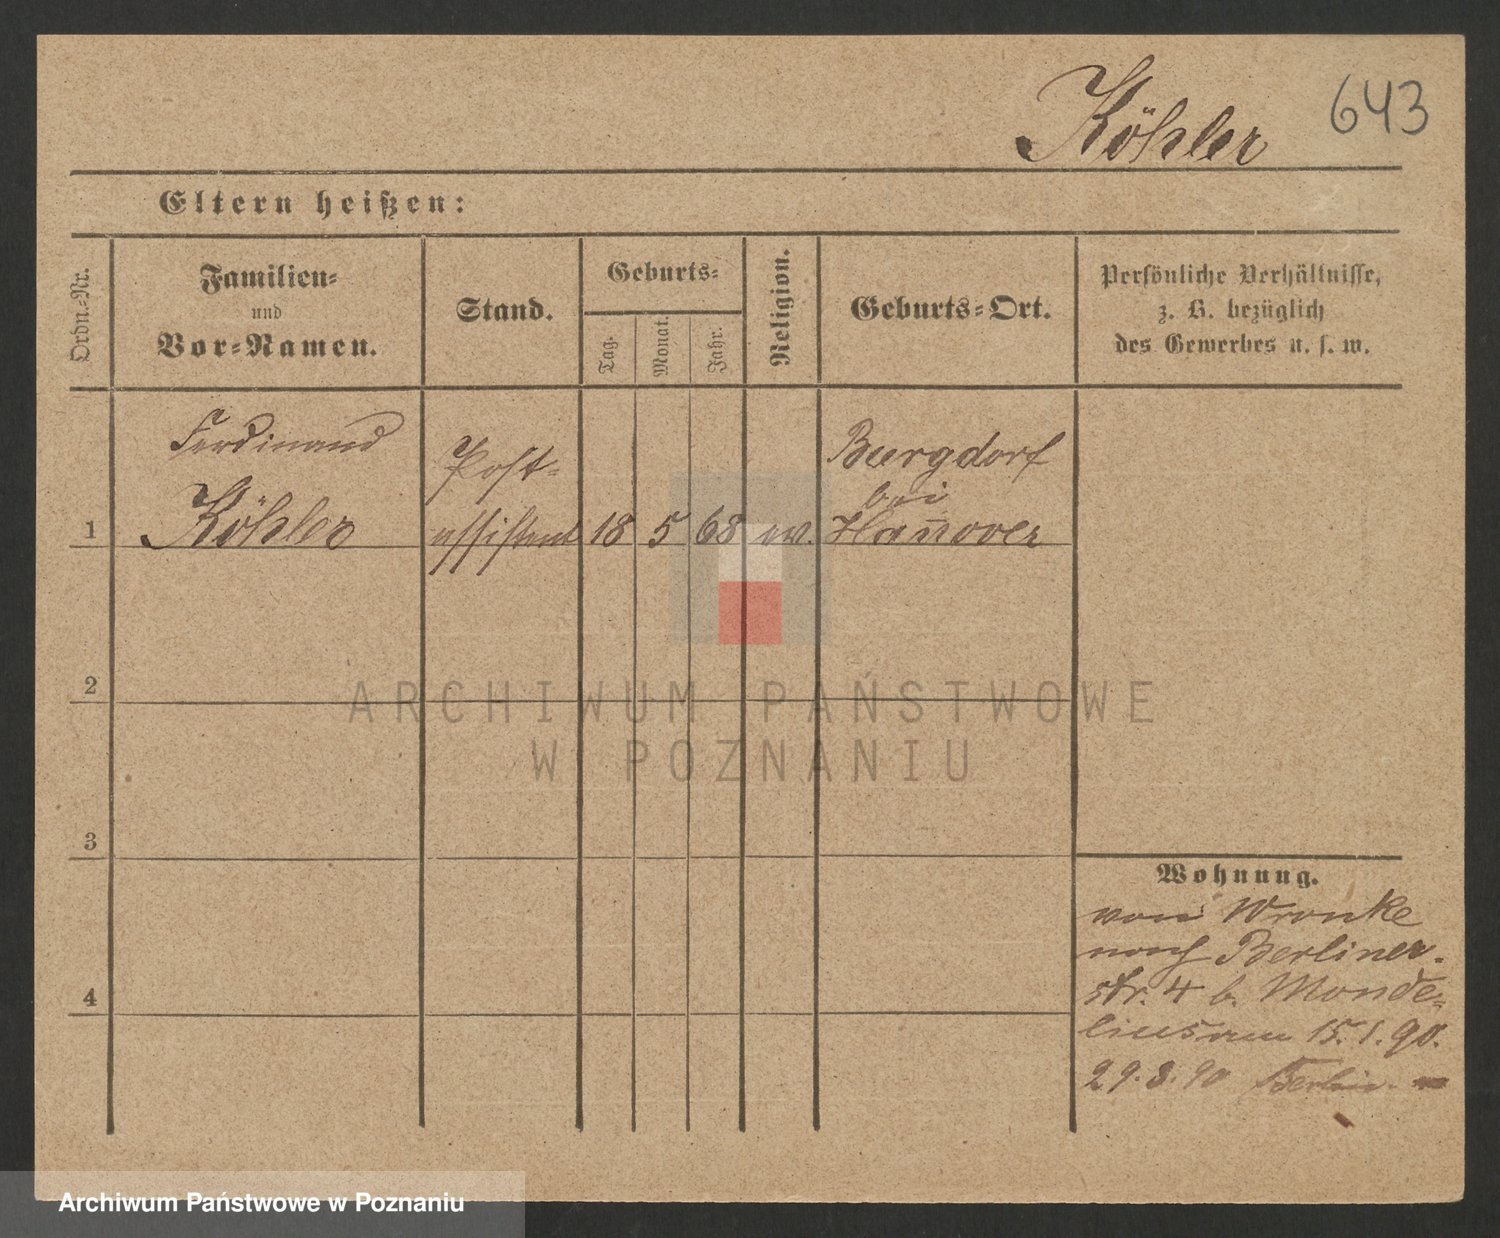 Köhler
643
Eltern heißen:
Ordn.-Nr.
Familien-
und
Vor-Namen.
Stand.
Geburts-
Tag.
Monat.
Jahr.
Religion.
Geburts-Ort.
Persönliche Verhältnisse,
z. B. bezüglich
des Gewerbes u. s. w.
Ferdinand
Köhler
Post-
assistent
1
18
5
68
ev.
Burgdorf
bei
Han̄over
2
3
4
Wohnung.
von Wronke
nach Berliner-
str. 4 b. Monde-
lius am 15.1.90.
29.3.90 Berlin.
ARCHIWUM PAŃSTWOWE
W POZNANIU
Archiwum Państwowe w Poznaniu